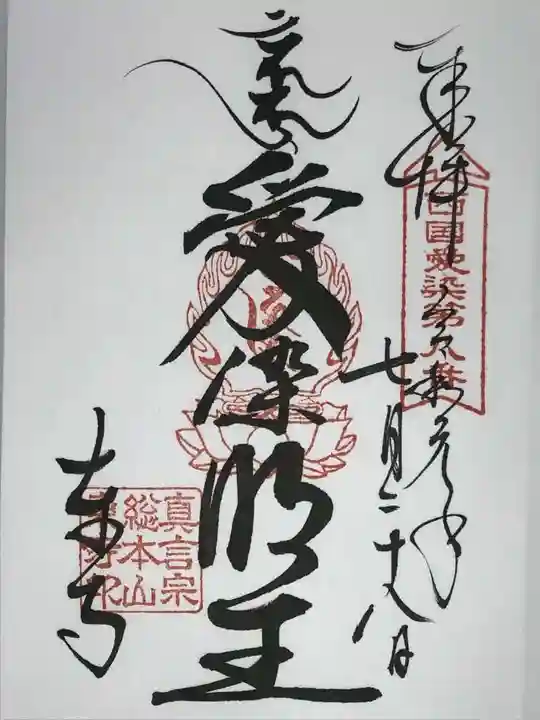 奉拝
西国愛染第八番
令和元年
七月二十八日
愛染明王
真言宗
総本山
東寺印
東寺